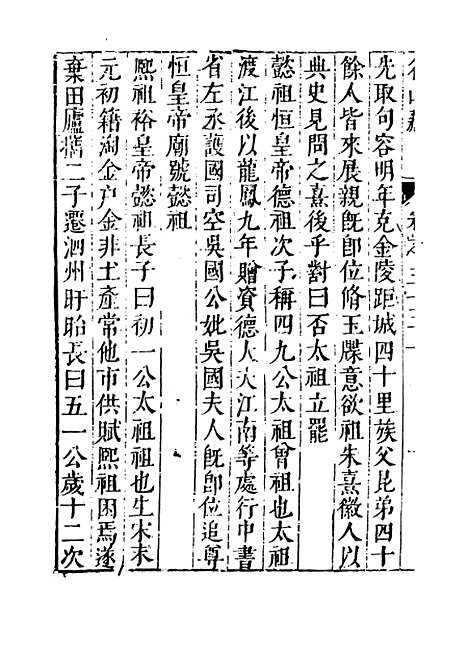 先取句容明年克金陵距城四十里族父昆弟四十
餘人皆來展親旣卽位脩玉牒意欲祖朱熹徽人以
典史見問之熹後乎對曰否太祖立罷
懿祖恒皇帝德祖次子稱四九公太祖曾祖也太祖
渡江後以龍鳳九年贈資德大夫江南等處行中書
省左丞護國司空吳國公妣吳國夫人旣卽位追尊
恒皇帝廟號懿祖
熙祖裕皇帝懿祖長子曰初一公太祖祖也生宋末
元初籍淘金戸金非土產常他市供賦熙祖困焉遂
棄田廬攜二子遷泗州盱眙長曰五一公歲十二次